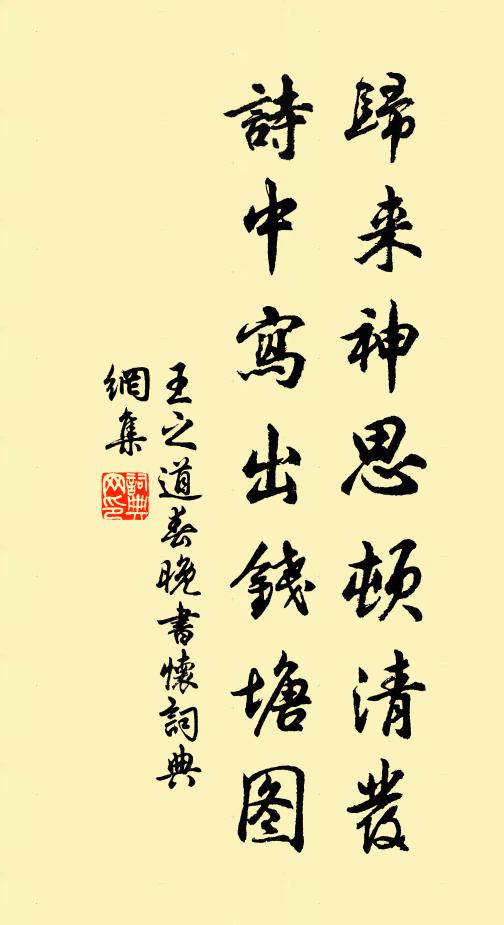 歸来神思頓清發
詩中寫出錢塘图
王之道春晚書懷詞典
網集
詞典
网印